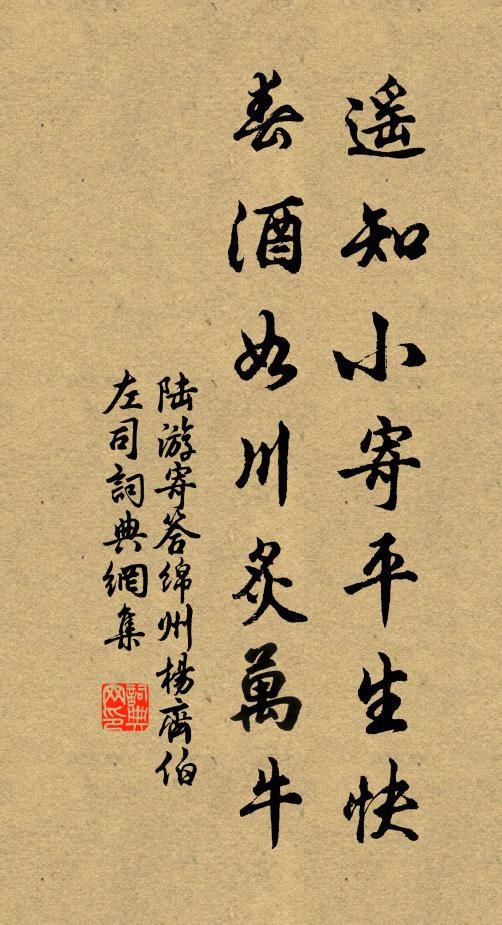 遥知小寄平生快
春酒如川炙萬牛
陆游寄答绵州楊齊伯
左司詞典網集
詞典网印